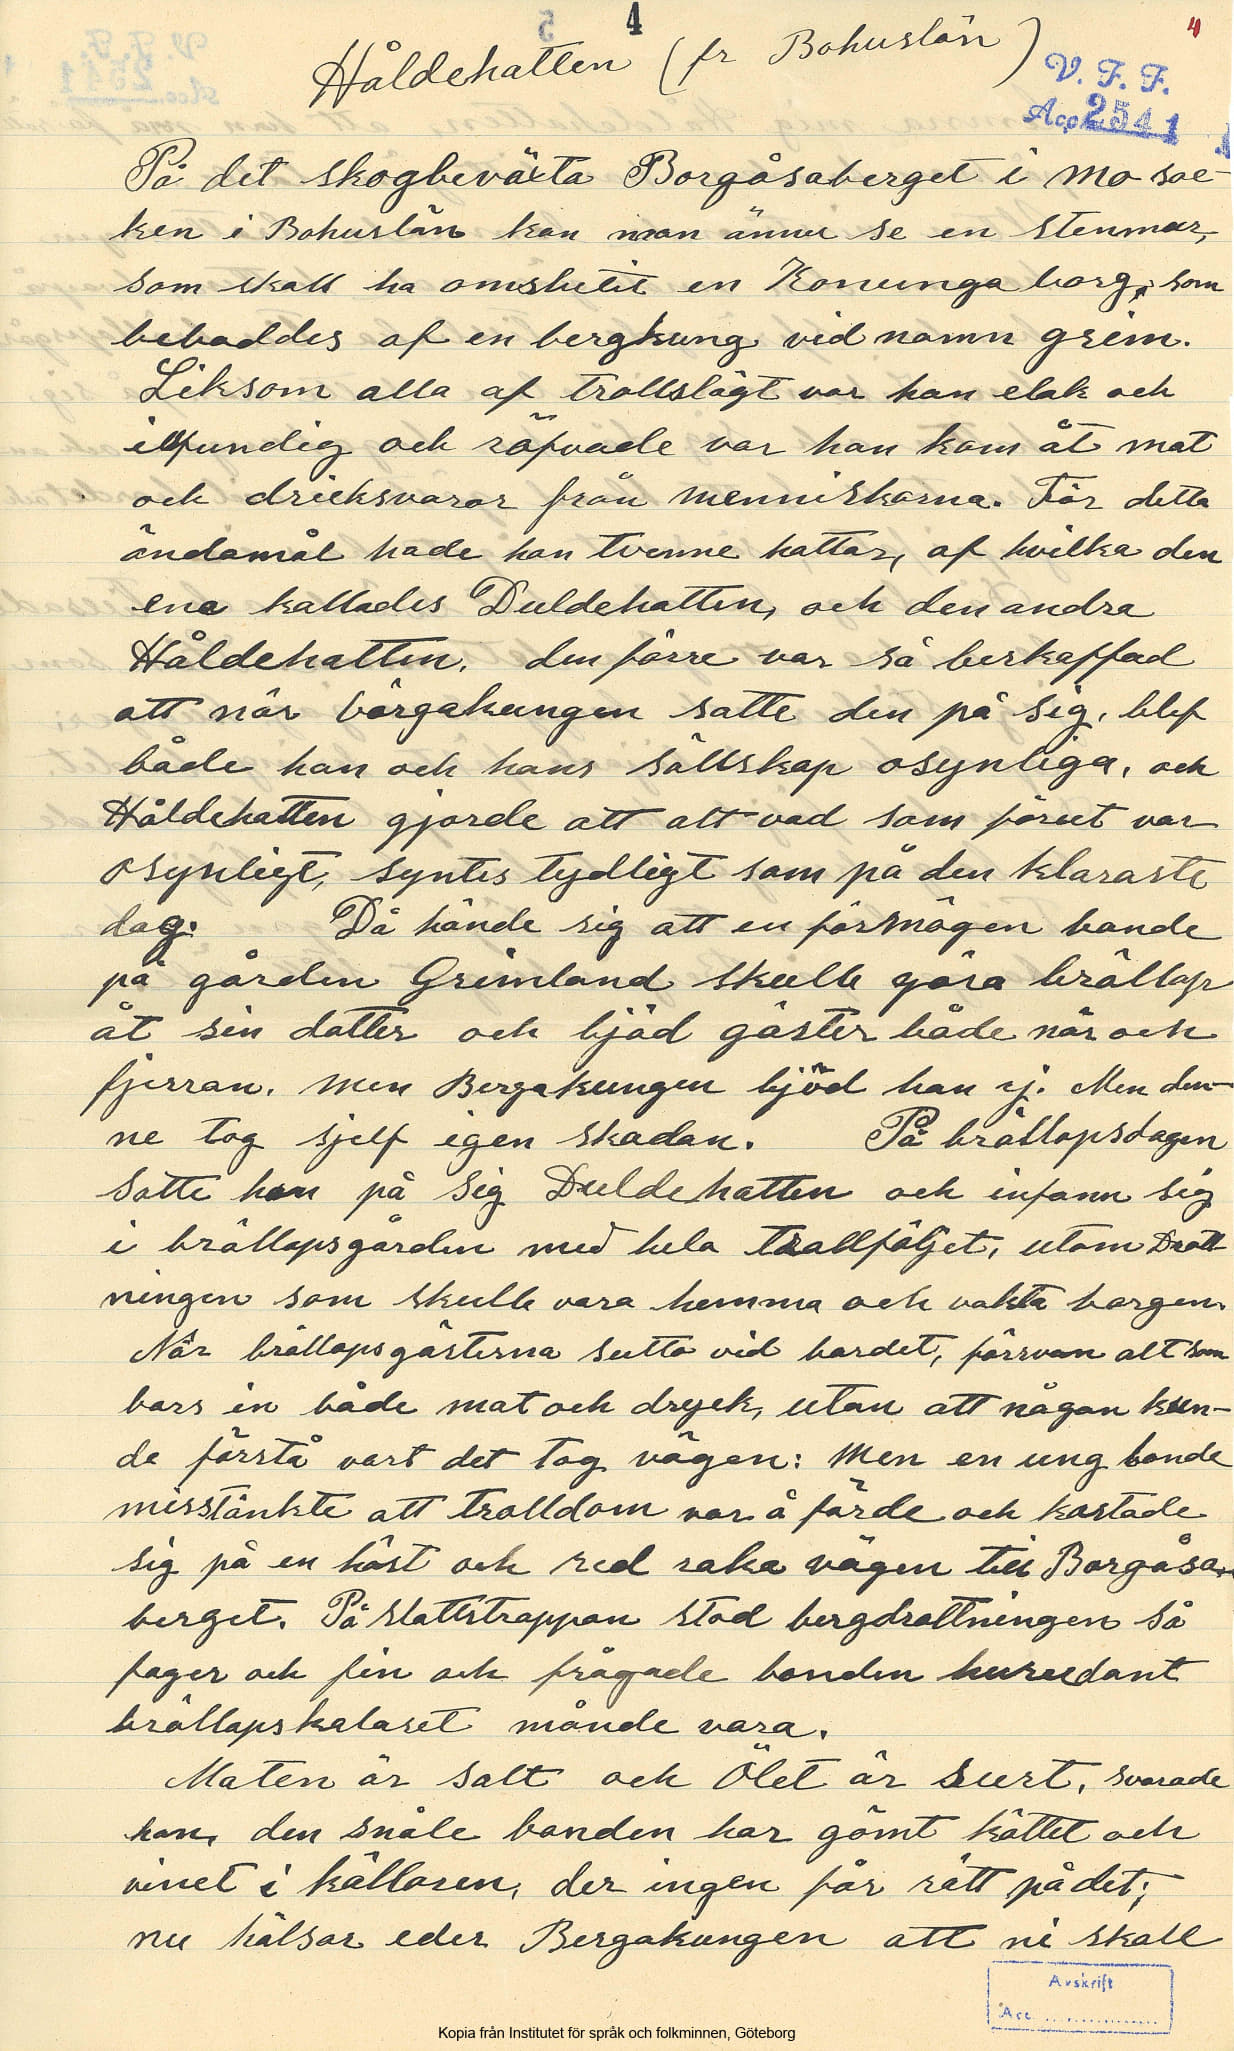 4
4
Håldehatten (fr Bohuslän)
V. F. F.
Acc. 2541
På det skogbeväxta Borgåsaberget i Mo soc-
ken i Bohuslän kan man ännu se en stenmur,
som skall ha omslutit en Konungaborg, som
beboddes af en bergkung vid namn grim.
Liksom alla af trollslägt var han elak och
illfundig och röfvade var han kom åt mat
och dricksvaror från menniskorna. För detta
ändamål hade han tvenne hattar, af hvilka den
ena kallades Duldehatten, och den andra
Håldehatten. den förre var så beskaffad
att när bärgakungen satte den på sig, blef
både han och hans sällskap osynliga, och
Håldehatten gjorde att alt vad som förut var
osynligt, syntes tydligt som på den klaraste
dag. Då hände sig att en förmögen bonde
på gården Grimland skulle göra bröllop
åt sin dotter och bjöd gäster både när och
fjerran. Men Bergakungen bjöd han ej. Men den-
ne tog sjelf igen skadan. På bröllopsdagen
satte han på sig Duldehatten och infann sig
i bröllopsgården med hela trollföljet, utom Drott-
ningen som skulle vara hemma och vakta borgen.
När bröllopsgästerna sutto vid bordet, försvan alt som
bars in både mat och dryck, utan att någon kun-
de förstå vart det tog vägen: Men en ung bonde
misstänkte att trolldom var å färde och kastade
sig på en häst och red raka vägen till Borgåsa-
berget. På slottstrappan stod bergdrottningen så
fager och fin och frågade bonden hurudant
bröllopskalaset månde vara.
Maten är salt och Ölet är surt, svarade
han, den snåle bonden har gömt köttet och
vinet i källaren, der ingen får rätt på det;
nu hälsar eder Bergakungen att ni skall
Avskrift
Acc ...............
Kopia från Institutet för språk och folkminnen, Göteborg